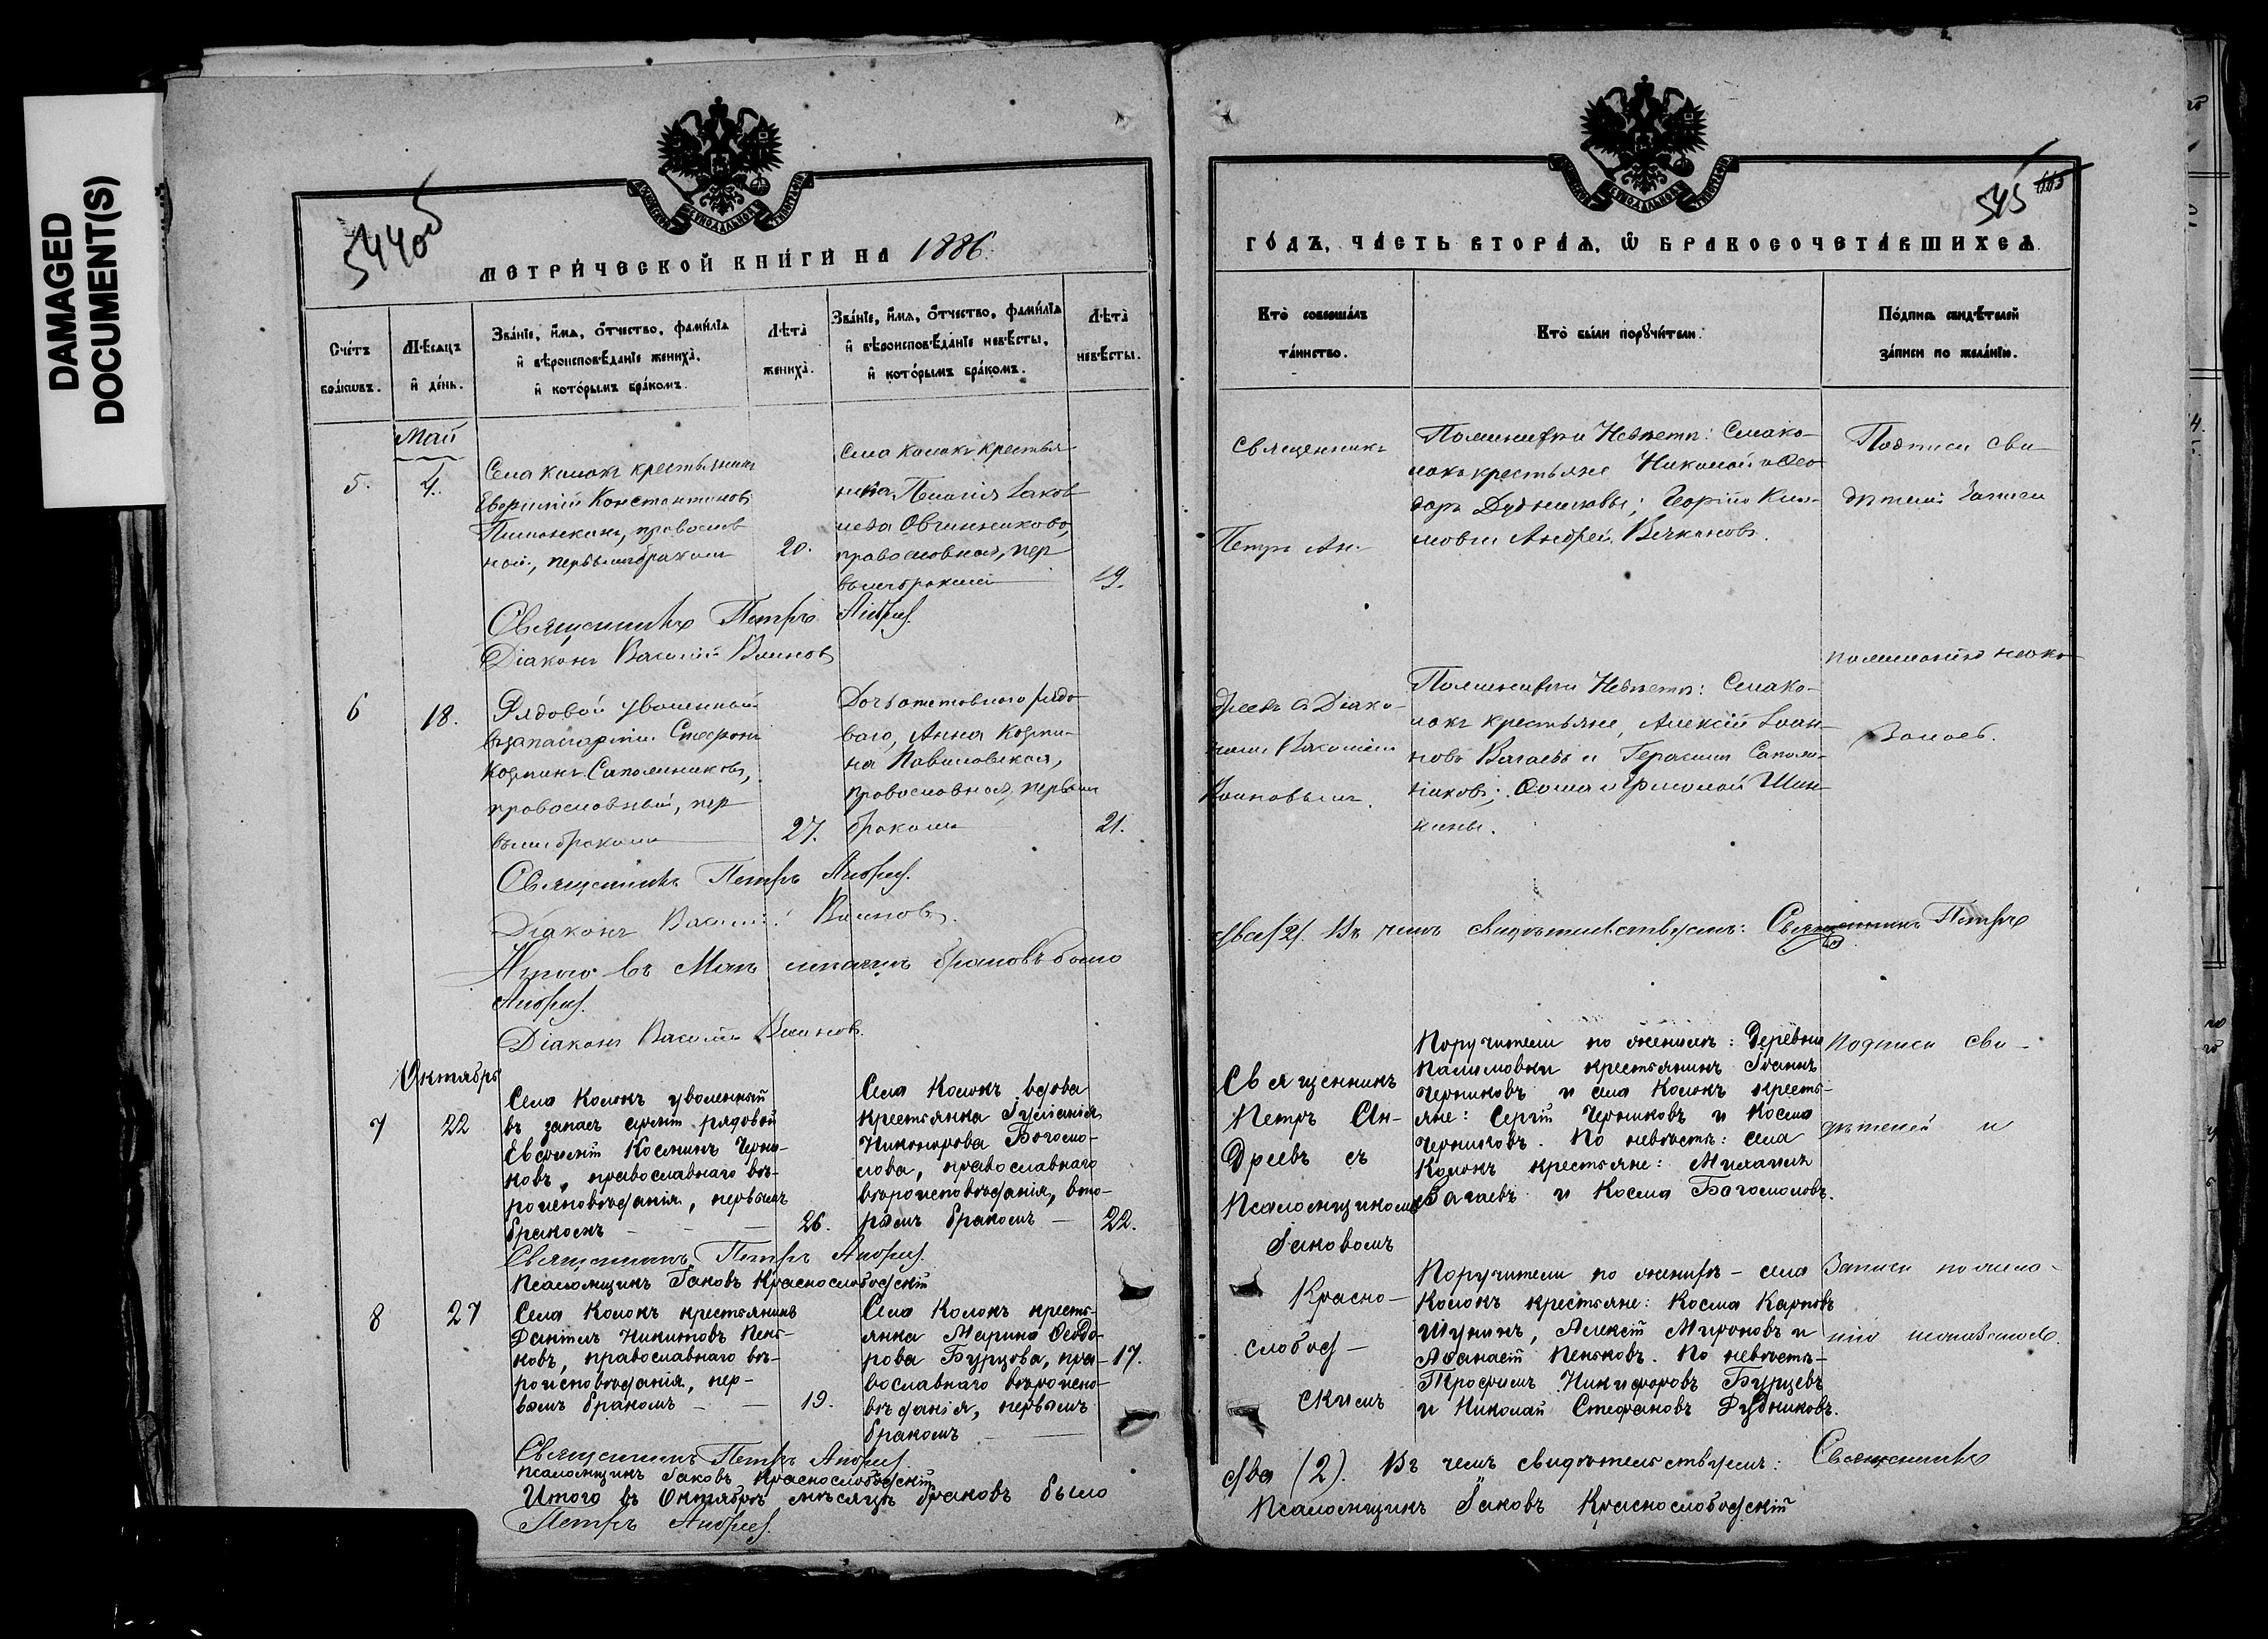 DAMAGED
DOCUMENT(S)
544об
МЕТРИЧЕСКОЙ КНИГИ НА 1886.
Счетъ браковъ.
Мѣсяцъ и день.
Званіе, имя, отчество, фамилія
и вѣроисповѣданіе жениха,
и которымъ бракомъ.
Лѣта
жениха.
Званіе, имя, отчество, фамилія
и вѣроисповѣданіе невѣсты,
и которымъ бракомъ.
Лѣта
невѣсты.
Май
5.
4.
Села Колокъ крестьянинъ
Константиновъ
православ
ной, первымъ бракомъ
20.
Села Колокъ крестьян
Овчинникова,
православная, пер
вымъ бракомъ
19.
Священникъ Петръ Андреев.
Діаконъ Василій Воиновъ
6
18.
Рядовой уволенный
въ запасъ арміи Стефанъ
Козминъ Сапожниковъ,
православный, пер
вымъ бракомъ
27.
Дочь отставного рядо
ваго, Анна Козми-
на
православная, первымъ
бракомъ
21.
Священникъ Петръ Андреев.
Діаконъ Василій Воиновъ.
Итого въ Маѣ мѣсяцѣ браковъ было
Андреев.
Діаконъ Василій Воиновъ.
Октябрь
7
22
Села Колокъ уволенный
въ запасъ арміи рядовой
Евфимій Косминъ Черни-
ковъ, православнаго вѣ-
роисповѣданія, первымъ
бракомъ – –
26.
Села Колокъ вдова
крестьянка Іуліанія
Никонорова Богомо-
лова, православнаго
вѣроисповѣданія, вто-
рымъ бракомъ –
22.
Священникъ Петръ Андреев.
Псаломщикъ Іаковъ Краснослободскій
8
27
Села Колокъ крестьянинъ
Даніилъ Никитовъ Пень-
ковъ, православнаго вѣ-
роисповѣданія, пер-
вымъ бракомъ – –
19.
Села Колокъ кресть-
янка Марина Ѳеодо-
рова Бурцова, пра-
вославнаго вѣроиспо-
вѣданія, первымъ
бракомъ – –
17.
Священникъ Петръ Андреев.
Псаломщикъ Іаковъ Краснослободскій
Итого въ Октябрѣ мѣсяцѣ браковъ было
Петръ Андреев.
545
ГОДЪ, ЧАСТЬ ВТОРАЯ, Ѡ БРАКОСОЧЕТАВШИХСЯ.
Кто совершалъ
таинство.
Кто были поручители.
Подпись свидѣтелей
записи по желанію.
Священникъ
Петръ Ан-
дреевъ съ Діако-
номъ Василіемъ
Воиновымъ.
По невѣстѣ: Села Ко-
локъ крестьяне Николай и Ѳео
доръ Дудниковы; Георгій Кли-
мовъ и Андрей
По невѣстѣ: Села Ко-
локъ крестьяне, Алексій Іоан-
новъ Вагаевъ и Герасимъ Сапож-
никовъ;
Подписи сви-
дѣтелей записи
два (2). Въ чемъ свидѣтельствуемъ: Священникъ Петръ
Священникъ
Петръ Ан-
дреевъ съ
Псаломщикомъ
Іаковомъ
Красно-
слобод-
скимъ
Поручители по женихѣ: Деревни
Калиновки крестьянинъ Іоаннъ
Черниковъ и села Колокъ кресть-
яне: Сергій Черниковъ и Косма
Черниковъ. По невѣстѣ: села
Колокъ крестьяне: Михаилъ
Вагаевъ и Косма Богомоловъ.
Поручители по женихѣ – села
Колокъ крестьяне: Косма Карповъ
Шунинъ, Алексій Мироновъ и
Аѳанасій Пеньковъ. По невѣстѣ –
Трофимъ Никифоровъ Бурцевъ
и Николай Стефановъ Дудниковъ.
Подписи сви-
дѣтелей и
записи по жела-
нію
два (2). Въ чемъ свидѣтельствуемъ: Священникъ
Псаломщикъ Іаковъ Краснослободскій